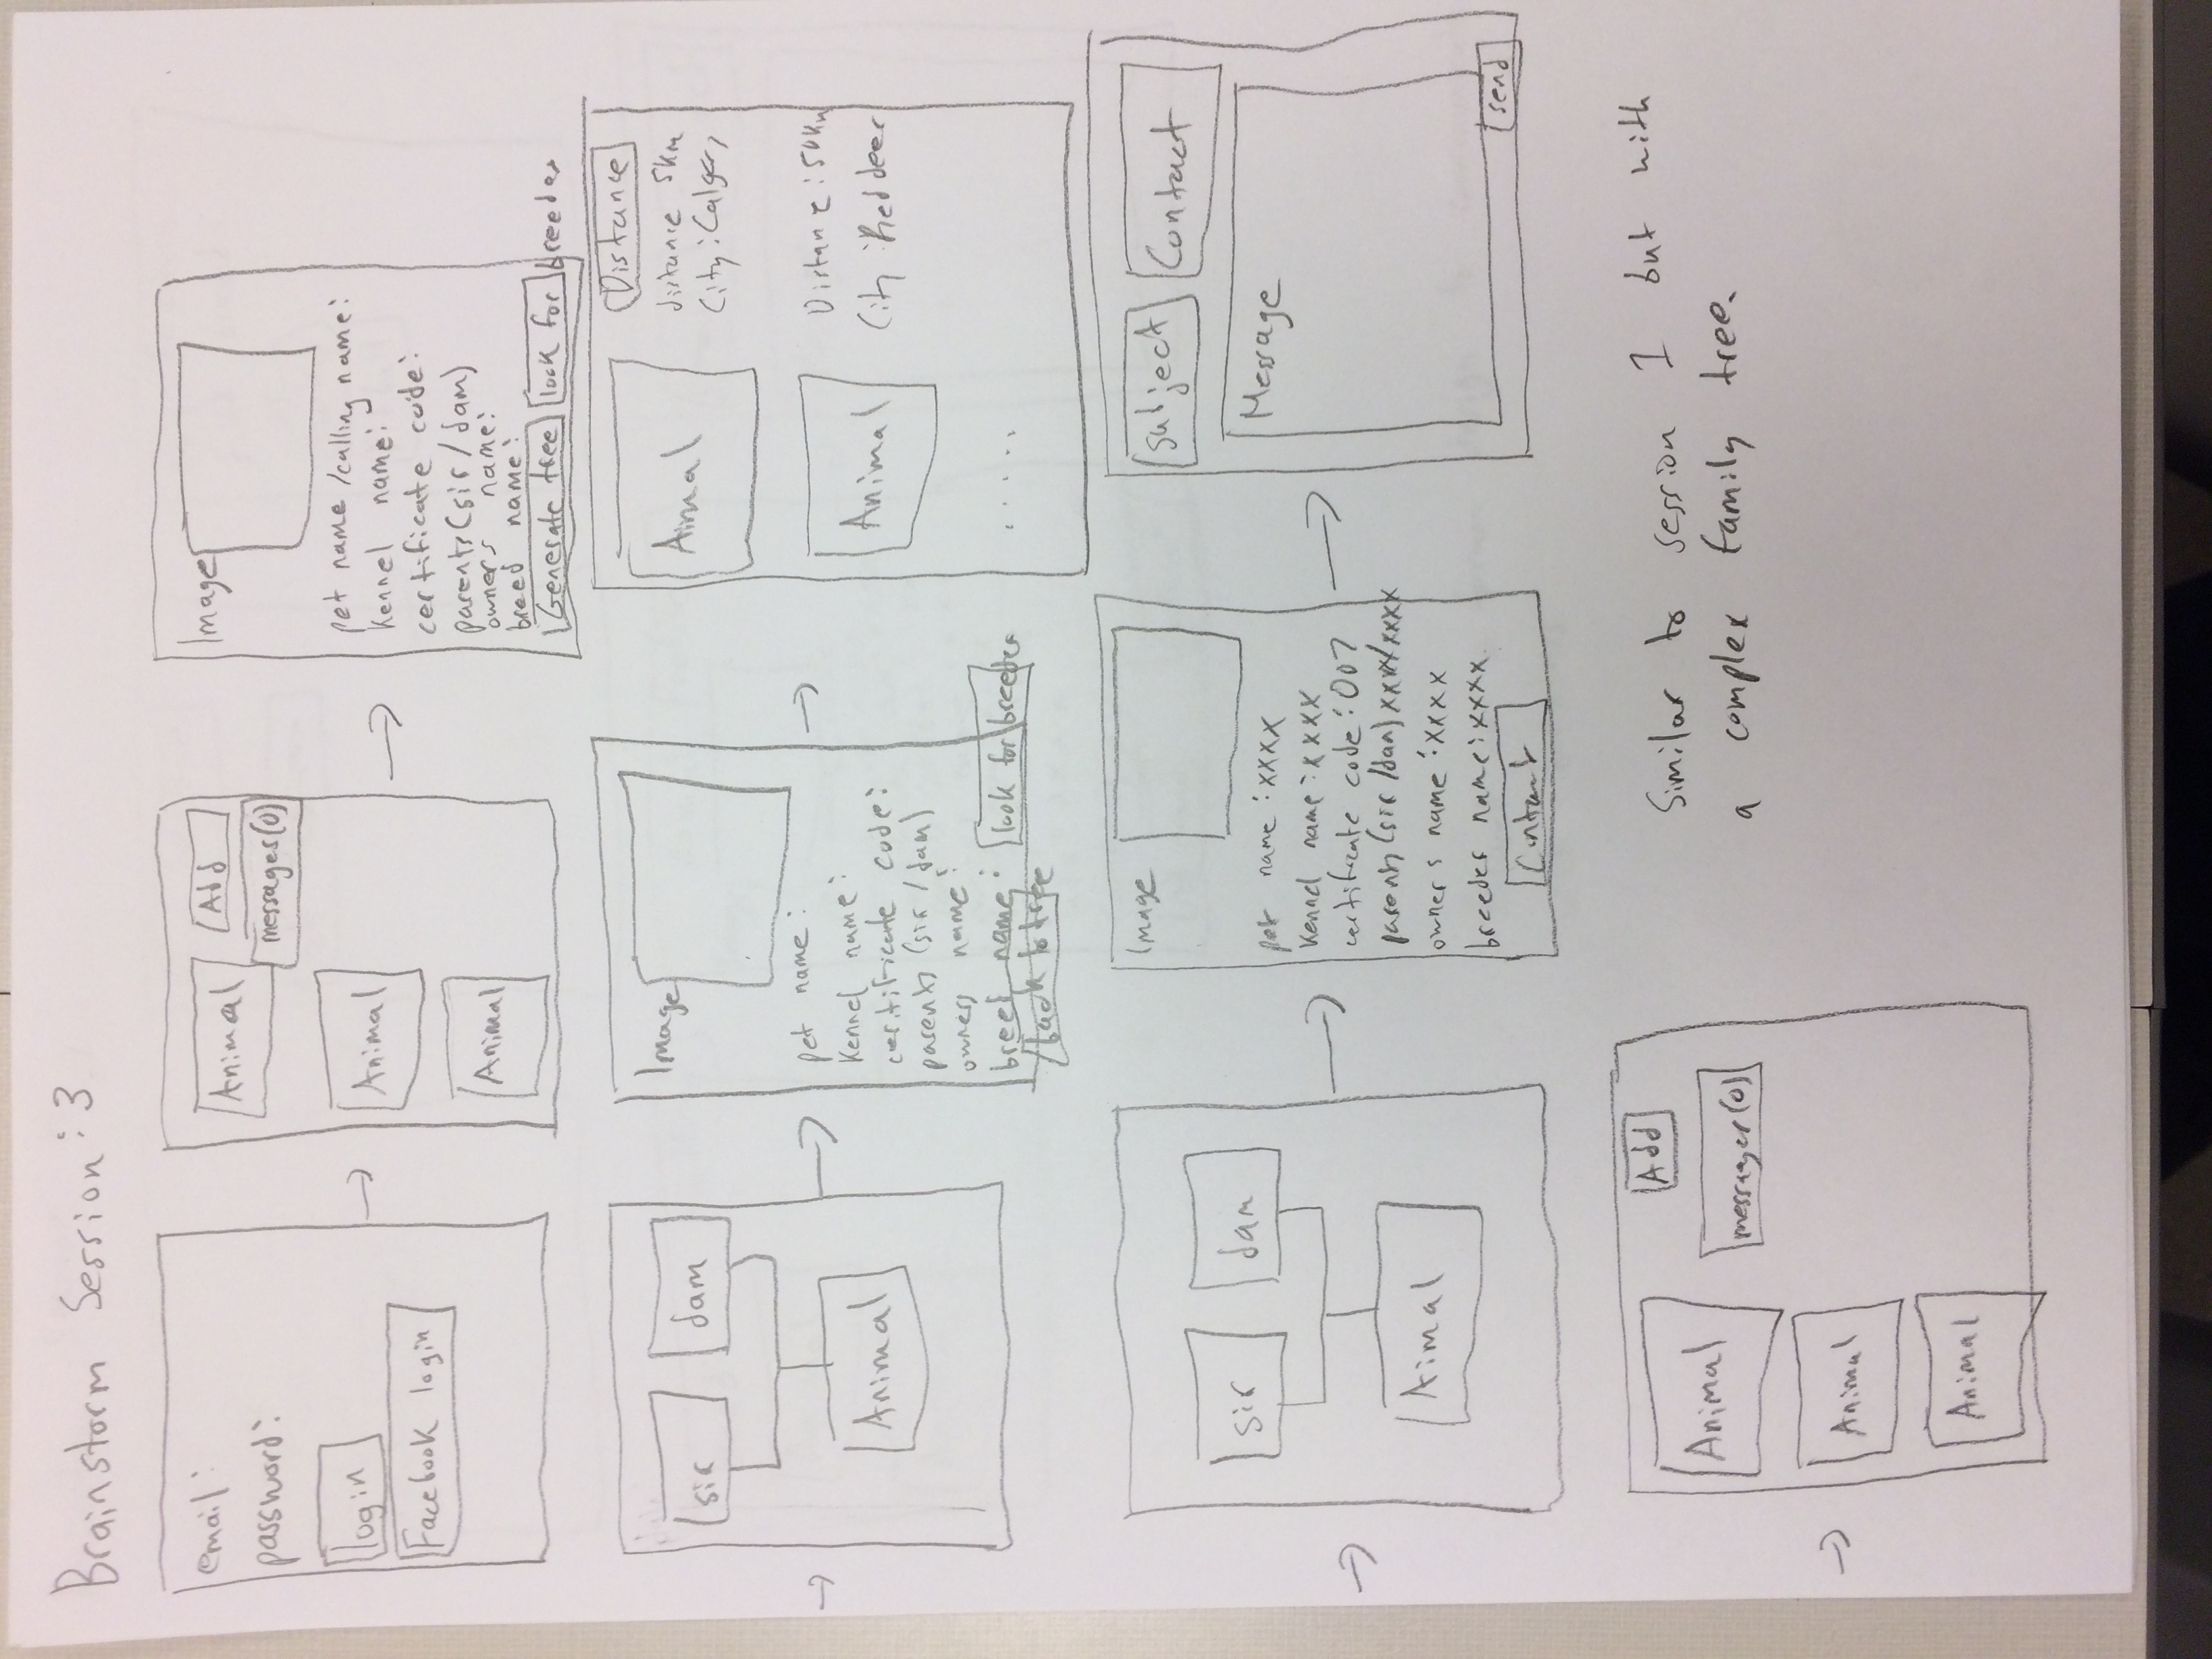 Brainstorm Session: 3
email:
password:
login
Facebook login
Animal
Add
messages(0)
Animal
Animal
Image
pet name /calling name:
Kennel name:
certificate code:
parents(sir/dam)
owners name:
breed name:
Generate tree
look for breeder
sir
dam
Animal
Image
pet name:
Kennel name:
certificate code:
parents (sir/dam)
owners name:
breed name:
look for breeder
back to tree
Aimal
Distance
distance 5km
City: Calgary
Animal
Distance: 50km
City: Red deer
.....
sir
dam
Aimal
Image
pet name: xxxx
Kennel name: xxxx
certificate code: 007
parents (sir/dam) xxxx/xxxx
owners name: xxxx
breeder name: xxxx
Contact
Subject
Contact
Message
send
Animal
Add
messages(0)
Animal
Animal
Similar to session 1 but with
a complex family tree.